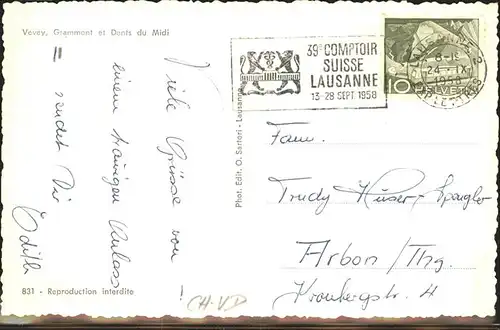 Vevey, Grammont et Dents du Midi
Viele Grüsse von
einem traurigen Anlass
sendet Dir
Edith
!
831 - Reproduction interdite
Phot. Edit. O. Sartori - Lausanne
39e COMPTOIR
SUISSE
LAUSANNE
13-28 SEPT. 1958
LAUSANNE 2
24-IX
1958
10
HELVETIA
Fam.
Trudy Huser-Spengler
Arbon/Thg.
Kronbergstr. 4
CH-VD